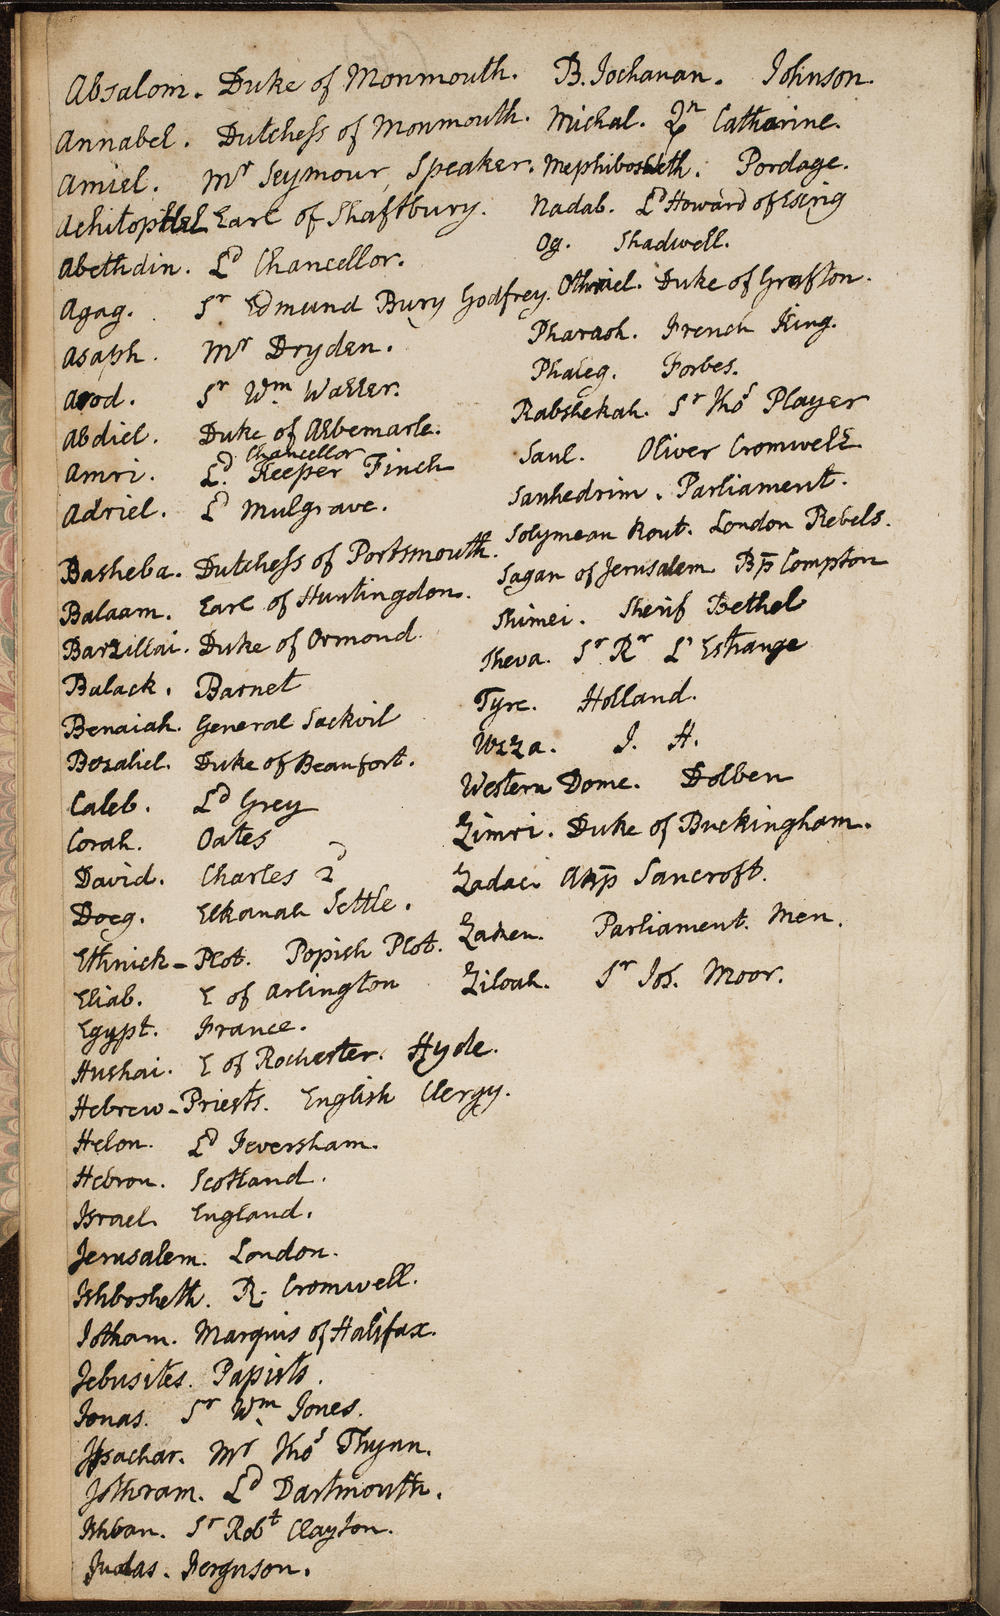 Absalom. Duke of Monmouth.
Annabel. Dutchess of Monmouth.
Amiel. Mr Seymour, Speaker.
Achitophel Earl of Shaftbury.
Abethdin. Ld Chancellor.
Agag. Sr Edmund Bury Godfrey.
Asaph. Mr Dryden.
Arod. Sr Wm Waller.
Abdiel. Duke of Albemarle.
Chancellor
Amri. Ld. Keeper Finch
Adriel. Ld Mulgrave.
Basheba. Dutchess of Portsmouth.
Balaam. Earl of Huntingdon.
Barzillai. Duke of Ormond.
Balack. Barnet
Benaiah. General Sackvil
Bezaliel. Duke of Beaufort.
Caleb. Ld Grey
Corah. Oates
David. Charles 2d
Doeg. Elkanah Settle.
Ethnick-Plot. Popish Plot.
Eliab. E of Arlington
Egypt. France.
Hushai. E of Rochester. Hyde.
Hebrew-Priests. English Clergy.
Helon. Ld Feversham.
Hebron. Scotland.
Israel. England.
Jerusalem. London.
Ishbosheth. R. Cromwell.
Jotham. Marquis of Halifax.
Jebusites. Papists.
Jonas. Sr Wm Jones.
Issachar. Mr Thos Thynn.
Jothram. Ld Dartmouth.
Ishban. Sr Robt Clayton.
Judas. Ferguson.
B. Jochanan. Johnson.
Michal. Qn Catharine.
Mephibosheth. Pordage.
Nadab. Ld Howard of Escrig
Og. Shadwell.
Othniel. Duke of Grafton.
Pharaoh. French King.
Phaleg. Forbes.
Rabshekah. Sr Thos Player
Saul. Oliver Cromwell
Sanhedrim. Parliament.
Solymean Rout. London Rebels.
Sagan of Jerusalem. Bp Compton
Shimei. Sherif Bethel
Sheva. Sr Rr L'Estrange
Tyre. Holland.
Uzza. J. H.
Western Dome. Dolben
Zimri. Duke of Buckingham.
Zadac. ABp Sancroft.
Zaken. Parliament. Men.
Ziloah. Sr Jos. Moor.